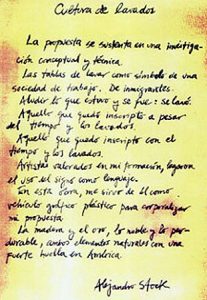 Cultura de lavados
La propuesta se sustenta en una investiga-
ción conceptual y técnica.
Las tablas de lavar como símbolo de una
sociedad de trabajo. De inmigrantes.
Aludir lo que estuvo y se fue: se lavó.
Aquello que quedó inscripto a pesar
del tiempo y los lavados.
Aquello que quedó inscripto con el
tiempo y los lavados.
Artistas valorados en mi formación, legaron
el uso del signo como lenguaje.
En esta obra, me sirvo de él como
vehículo gráfico plástico para corporalizar
mi propuesta.
La madera y el oro, lo noble y lo per-
durable, ambos elementos naturales con una
fuerte huella en América.
Alejandro Stock